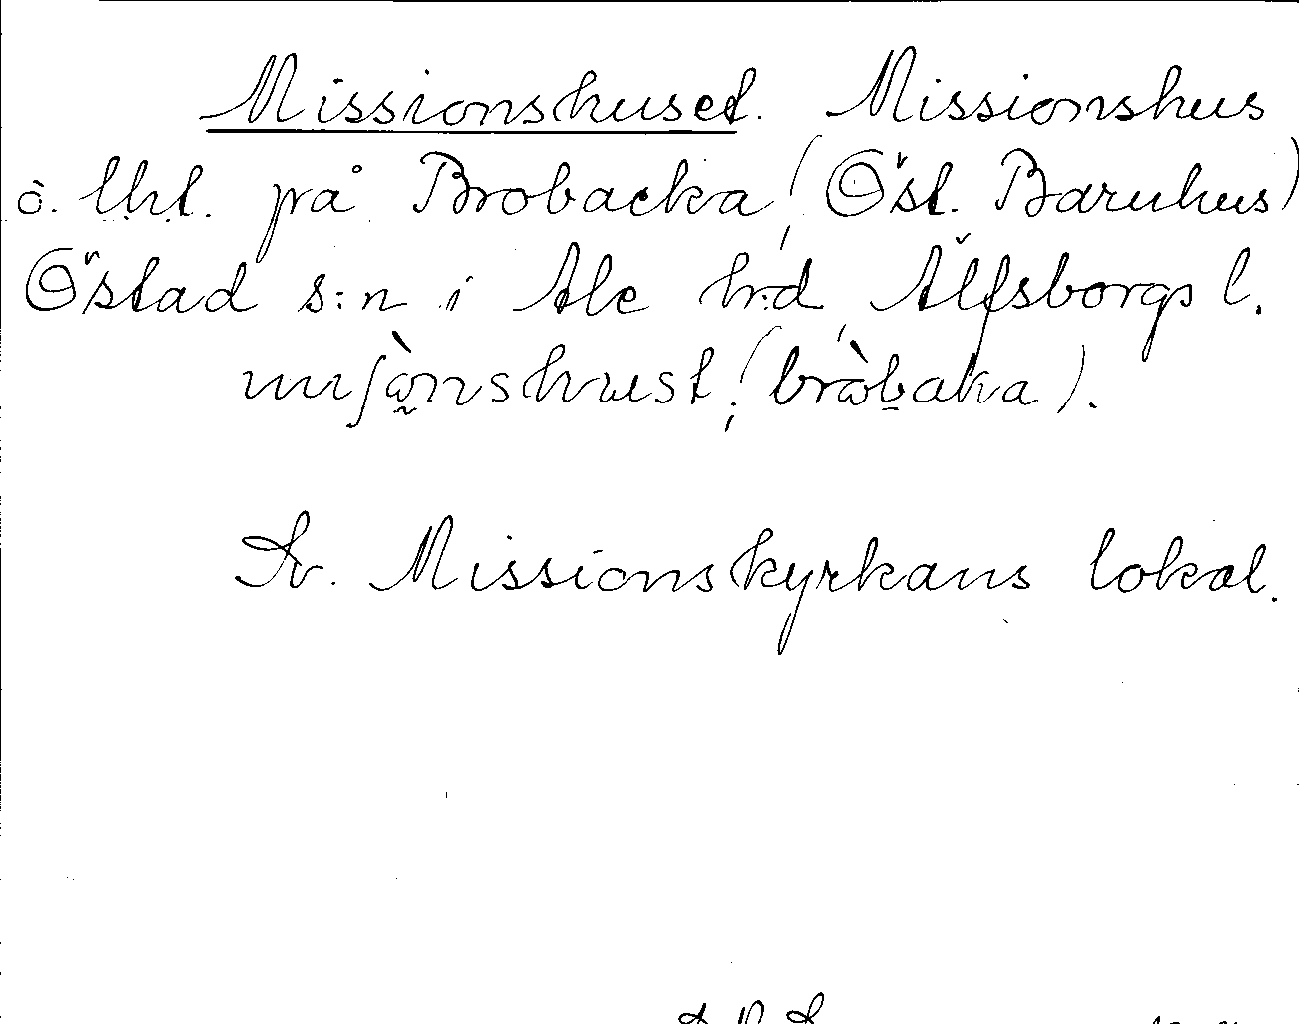 Missionshuset. Missionshus
å. lht. på Brobacka (Öst. Barnhus)
Östad s:n i Ale h:d Älfsborgs l.
miʃὼnshust. (brὼbaka).
Sv. Missionskyrkans lokal.